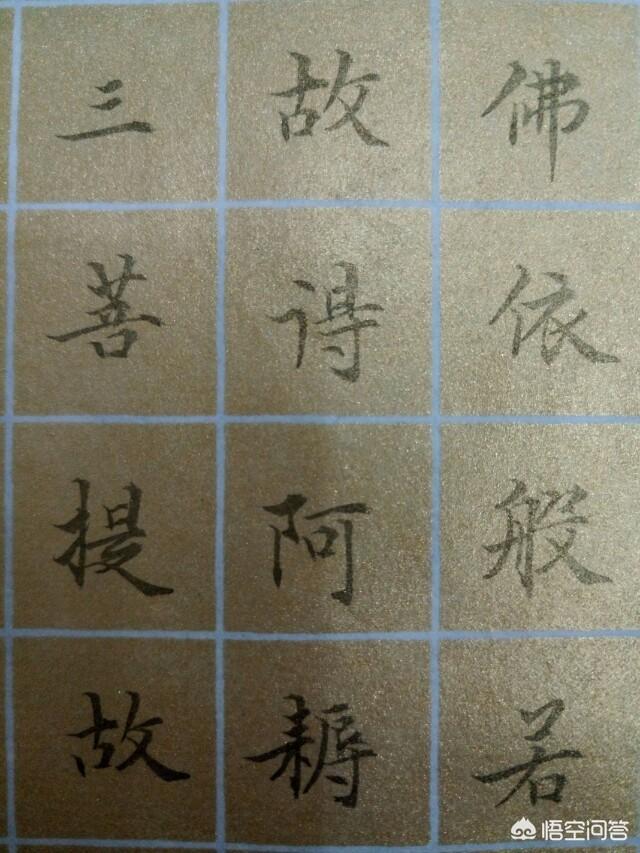 佛依般若
故得阿耨
三菩提故
悟空问答